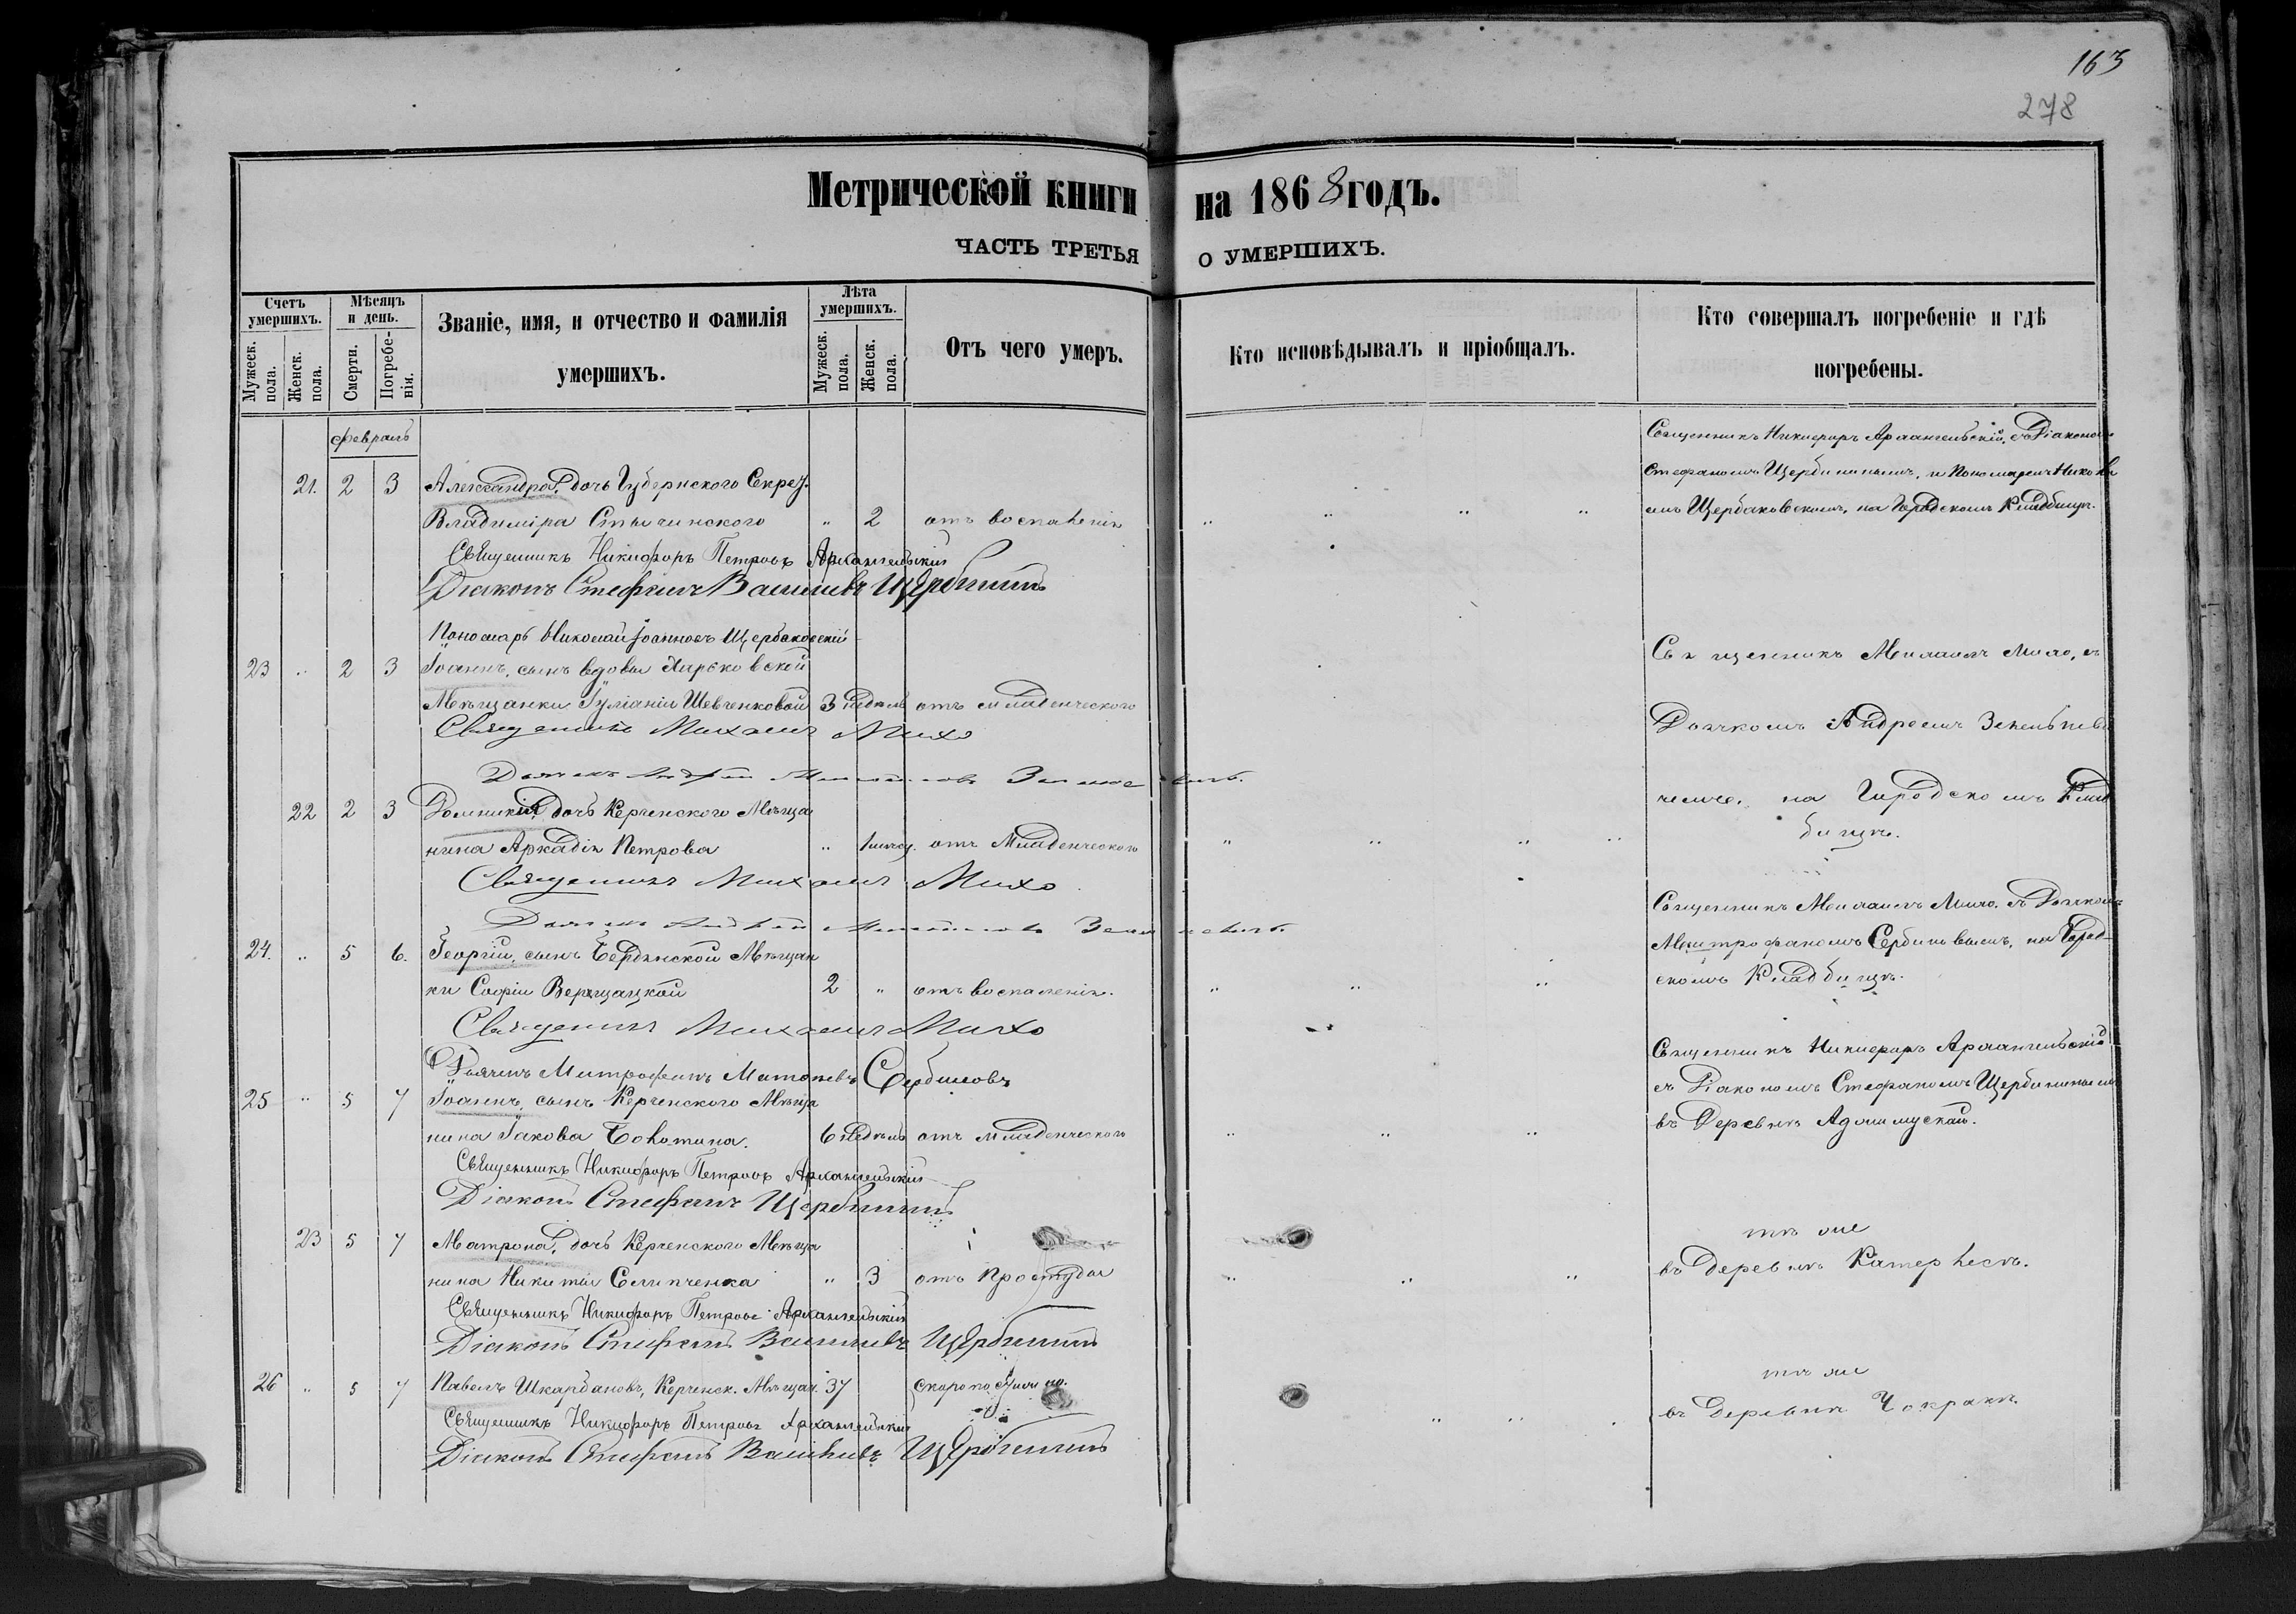 163
278
Метрической книги на 1868 годъ.
ЧАСТЬ ТРЕТЬЯ О УМЕРШИХЪ.
Счетъ умершихъ.
Мужеск. пола.
Женск. пола.
Мѣсяцъ и день.
Смерти.
Погребенія.
Званіе, имя, и отчество и фамилія
умершихъ.
Лѣта умершихъ.
Мужеск. пола.
Женск. пола.
Отъ чего умеръ.
Кто исповѣдывалъ и пріобщалъ.
Кто совершалъ погребеніе и гдѣ
погребены.
февраль
21. 2 3 Александра, дочь Губернского Секрет.
Владиміра „ 2 отъ воспаленія „ „ „ „
Священникъ Никифоръ Архангельскій, съ Діакономъ
Стефаномъ Щербининымъ, и Пономаремъ Никола
емъ Щербаковскимъ, на Городскомъ Кладбищѣ.
Священникъ Никифоръ Петровъ Архангельскій
Діаконъ Стефанъ Васильевъ Щербининъ
Пономарь Николай Іоанновъ Щербаковскій
23 „ 2 3 Іоаннъ, сынъ вдовы Харьковской
Мѣщанки Іуліаніи Шевченковой 3 недѣль отъ младенческого
Священникъ Михаилъ Михо, съ
Дьячкомъ Андреемъ
на Городскомъ Клад
бищѣ.
Священникъ Михаилъ Михо
Дьячекъ Андрей
22 2 3 Домникія, дочь Керченского Мѣща
нина Аркадія Петрова „ 1 мѣсяц. отъ Младенческого „ „ „ „
Священникъ Михаилъ Михо
Дьячекъ Андрей
24. „ 5 6. Георгій, сынъ Бердянской Мѣщан
ки Софіи Верещацкой 2 „ отъ воспаленія. „ „ „
Священникъ Михаилъ Михо. съ Дьячкомъ
Митрофаномъ Сербиновымъ, на Город-
скомъ Кладбищѣ.
Священникъ Михаилъ Михо
Дьячекъ Митрофанъ Сербиновъ
25 „ 5 7 Іоаннъ, сынъ Керченского Мѣща
нина Іакова 6 недѣль отъ младенческого „ „ „
Священникъ Никифоръ Архангельскій
съ Діакономъ Стефаномъ Щербининымъ
въ Деревнѣ Аджимускай.
Священникъ Никифоръ Петровъ Архангельскій
Діаконъ Стефанъ Щербининъ
23 5 7 Матрона, дочь Керченского Мѣща
нина Никиты „ 3 отъ простуды „ „ „
тѣ же
въ Деревнѣ Катерлесъ.
Священникъ Никифоръ Петровъ Архангельскій
Діаконъ Стефанъ Васильевъ Щербининъ
26 „ 5 7 Павелъ Шкарбановъ, Керченск. Мѣщан. 37 скоропостижно. „ „
тѣ же
въ Деревнѣ Чокракъ.
Священникъ Никифоръ Петровъ Архангельскій
Діаконъ Стефанъ Васильевъ Щербининъ